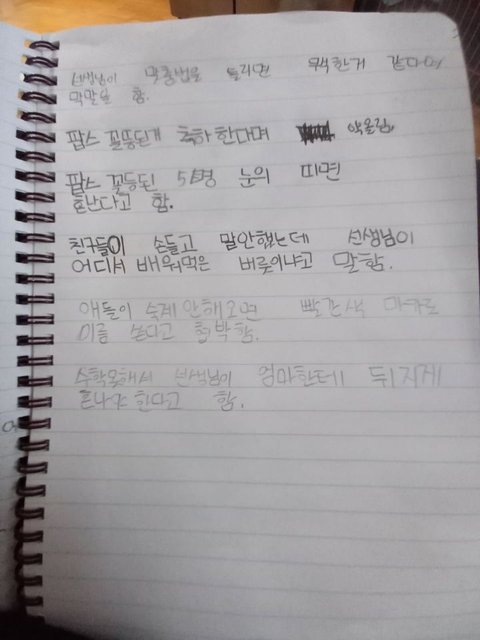 선생님이 맞충법을 틀리면 무식한거 같다며
막말을 함.
팝스 꼴뜽된게 축하한다며 약올림.
팝스 꼴등된 5명 눈의 띠면
혼난다고 함.
친구들이 손들고 말안했는데 선생님이
어디서 배워먹은 버릇이냐고 말함.
애들이 숙제 안해오면 빨간색 마카로
이름 쓴다고 협박함.
수학못해서 선생님이 엄마한테 뒤지게
혼나야 한다고 함.